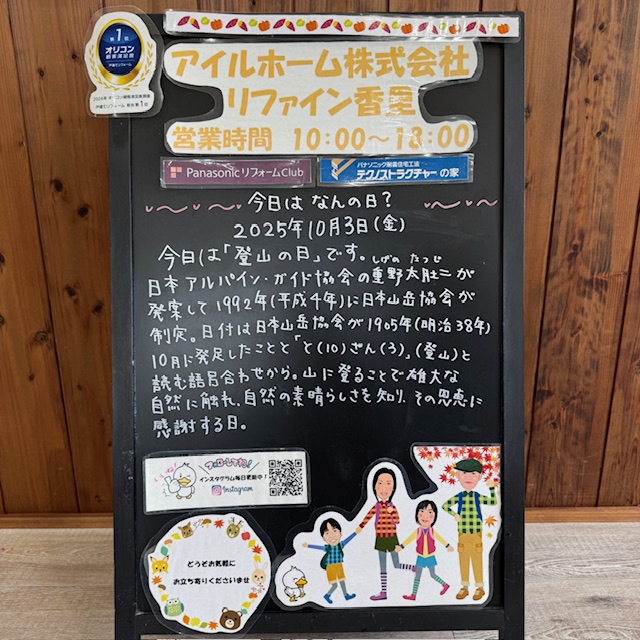 第1位
オリコン
顧客満足度
戸建てリフォーム
2024年 オリコン顧客満足度調査
戸建てリフォーム 総合 第1位
アイルホーム株式会社
リファイン香里
営業時間 10:00〜18:00
Panasonic リフォーム Club
パナソニック耐震住宅工法
テクノストラクチャーの家
今日は なんの日?
2025年10月3日(金)
今日は「登山の日」です。
しげの たつじ
日本アルパイン・ガイド協会の重野太肚二が
発案して1992年(平成4年)に日本山岳協会が
制定。日付は日本山岳協会が1905年(明治38年)
10月に発足したことと「と(10)ざん(3)」(登山)と
読む語呂合わせから。山に登ることで雄大な
自然に触れ、自然の素晴らしさを知り、その恩恵に
感謝する日。
フォローしてね!
インスタグラム毎日更新中!
Instagram
どうぞお気軽に
お立ち寄りくださいませ